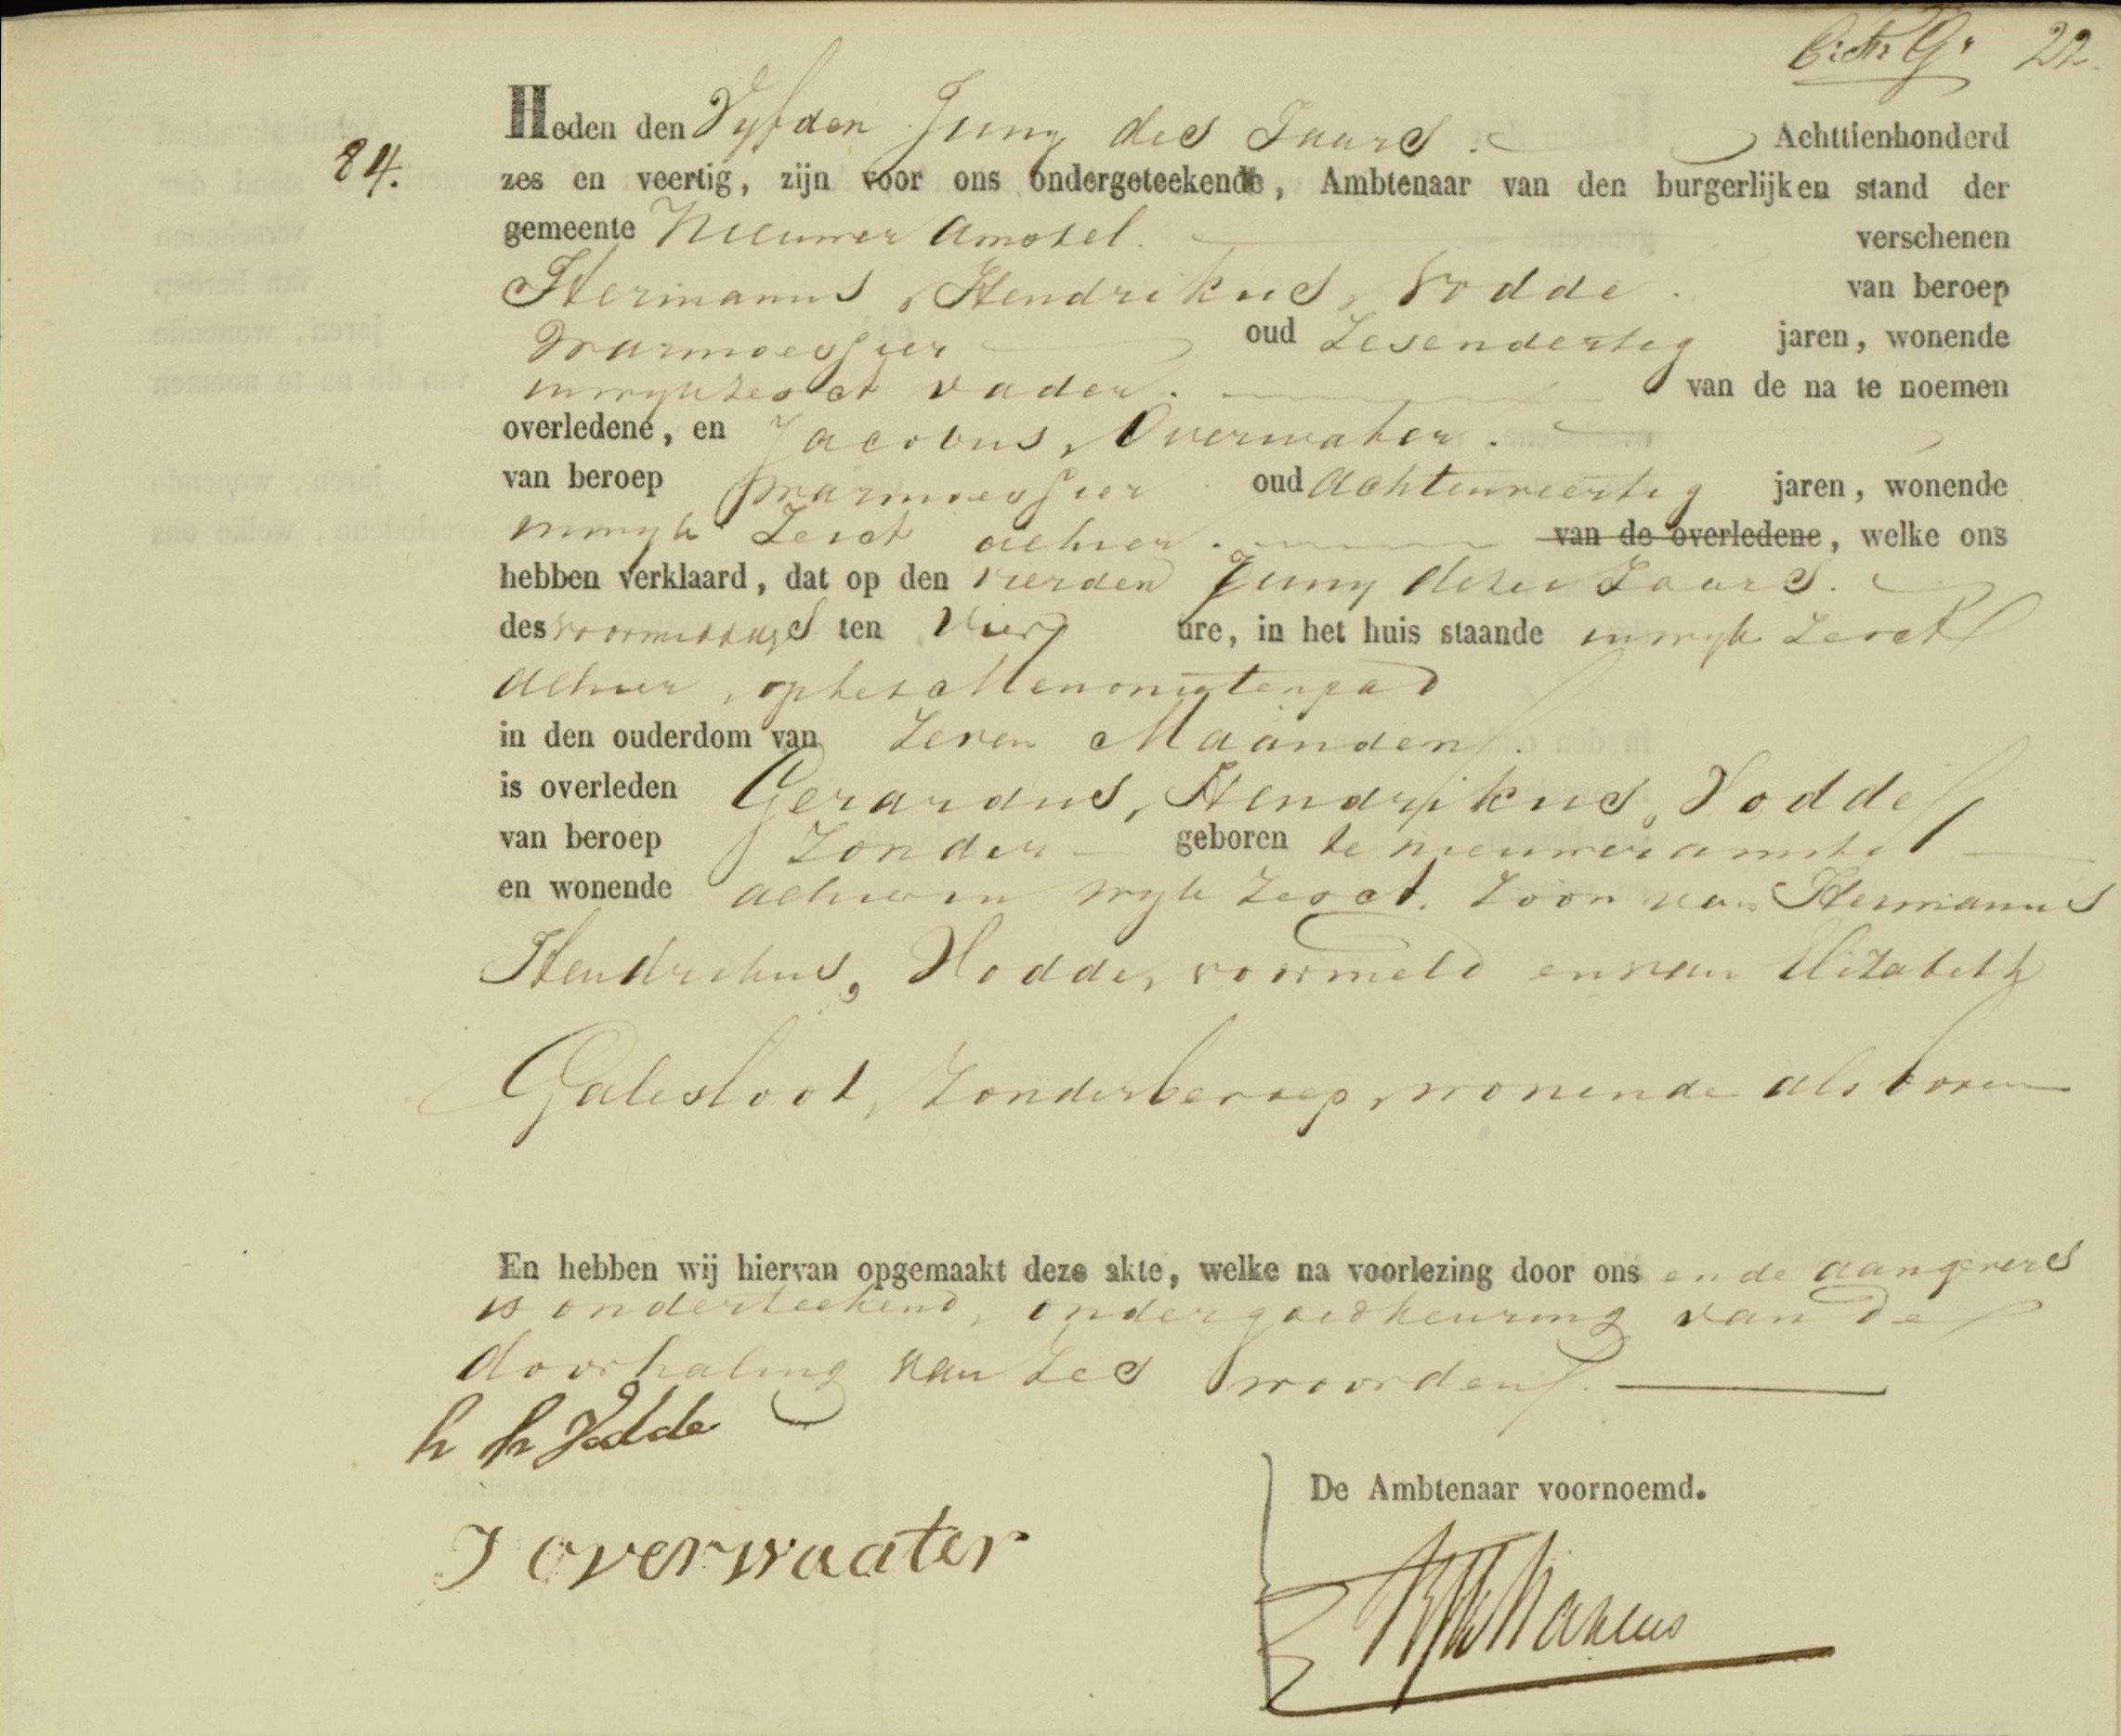 22.
84.
Heden den Vyfden Juny des Jaars. Achttienhonderd
zes en veertig, zijn voor ons ondergeteekende, Ambtenaar van den burgerlijken stand der
gemeente Nieuwer Amstel. verschenen
Hermanus, Hendrikus, Vodde. van beroep
Warmoessier oud Zesendertig jaren, wonende
inwyk Zesct vader. van de na te noemen
overledene, en Jacobus, Overwater.
van beroep Warmoessier oud Achtenveertig jaren, wonende
inwyk Zesct alhier. van de overledene, welke ons
hebben verklaard, dat op den vierden Juny dezer Jaars.
des voormiddags ten Vier ure, in het huis staande inwyk Zesct
alhier, op het Menonistenpad
in den ouderdom van Zeven Maanden.
is overleden Gerardus, Hendrikus, Vodde,
van beroep Zonder geboren te nieuweramstel
en wonende alhier in wyk Zesct. Zoon van Hermanus
Hendrikus, Vodde, voormeld en van Elizabeth
Galesloot, Zonder beroep, wonende als boven
En hebben wij hiervan opgemaakt deze akte, welke na voorlezing door ons en de aangevers
is onderteekend, onder goedkeuring van de
doorhaling van Zes woorden.
h h Vodde
De Ambtenaar voornoemd.
J overwaater